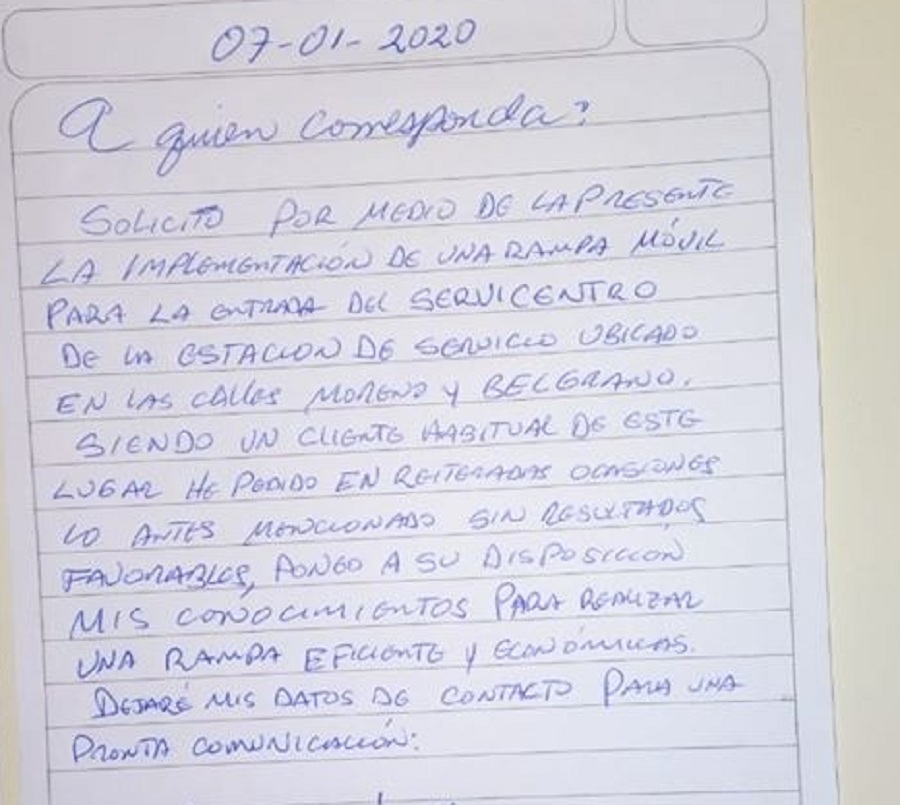 07-01-2020
A quien corresponda:
SOLICITO POR MEDIO DE LA PRESENTE
LA IMPLEMENTACIÓN DE UNA RAMPA MÓVIL
PARA LA ENTRADA DEL SERVICENTRO
DE LA ESTACION DE SERVICIO UBICADO
EN LAS CALLES MORENO Y BELGRANO.
SIENDO UN CLIENTE HABITUAL DE ESTE
LUGAR HE PEDIDO EN REITERADAS OCASIONES
LO ANTES MENCIONADO SIN RESULTADOS
FAVORABLES, PONGO A SU DISPOSICIÓN
MIS CONOCIMIENTOS PARA REALIZAR
UNA RAMPA EFICIENTE Y ECONÓMICAS.
DEJARÉ MIS DATOS DE CONTACTO PARA UNA
PRONTA COMUNICACIÓN: